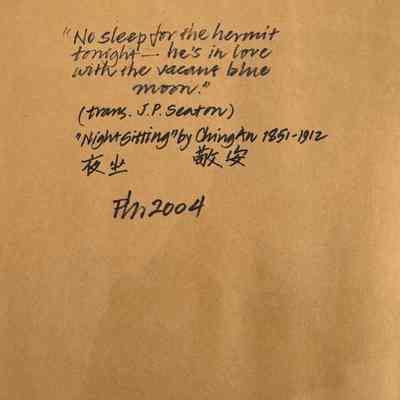 "No sleep for the hermit
tonight — he's in love
with the vacant blue
moon."
(trans. J.P. Seaton)
"Night Sitting" by Ching An 1851-1912
夜坐 敬安
2004